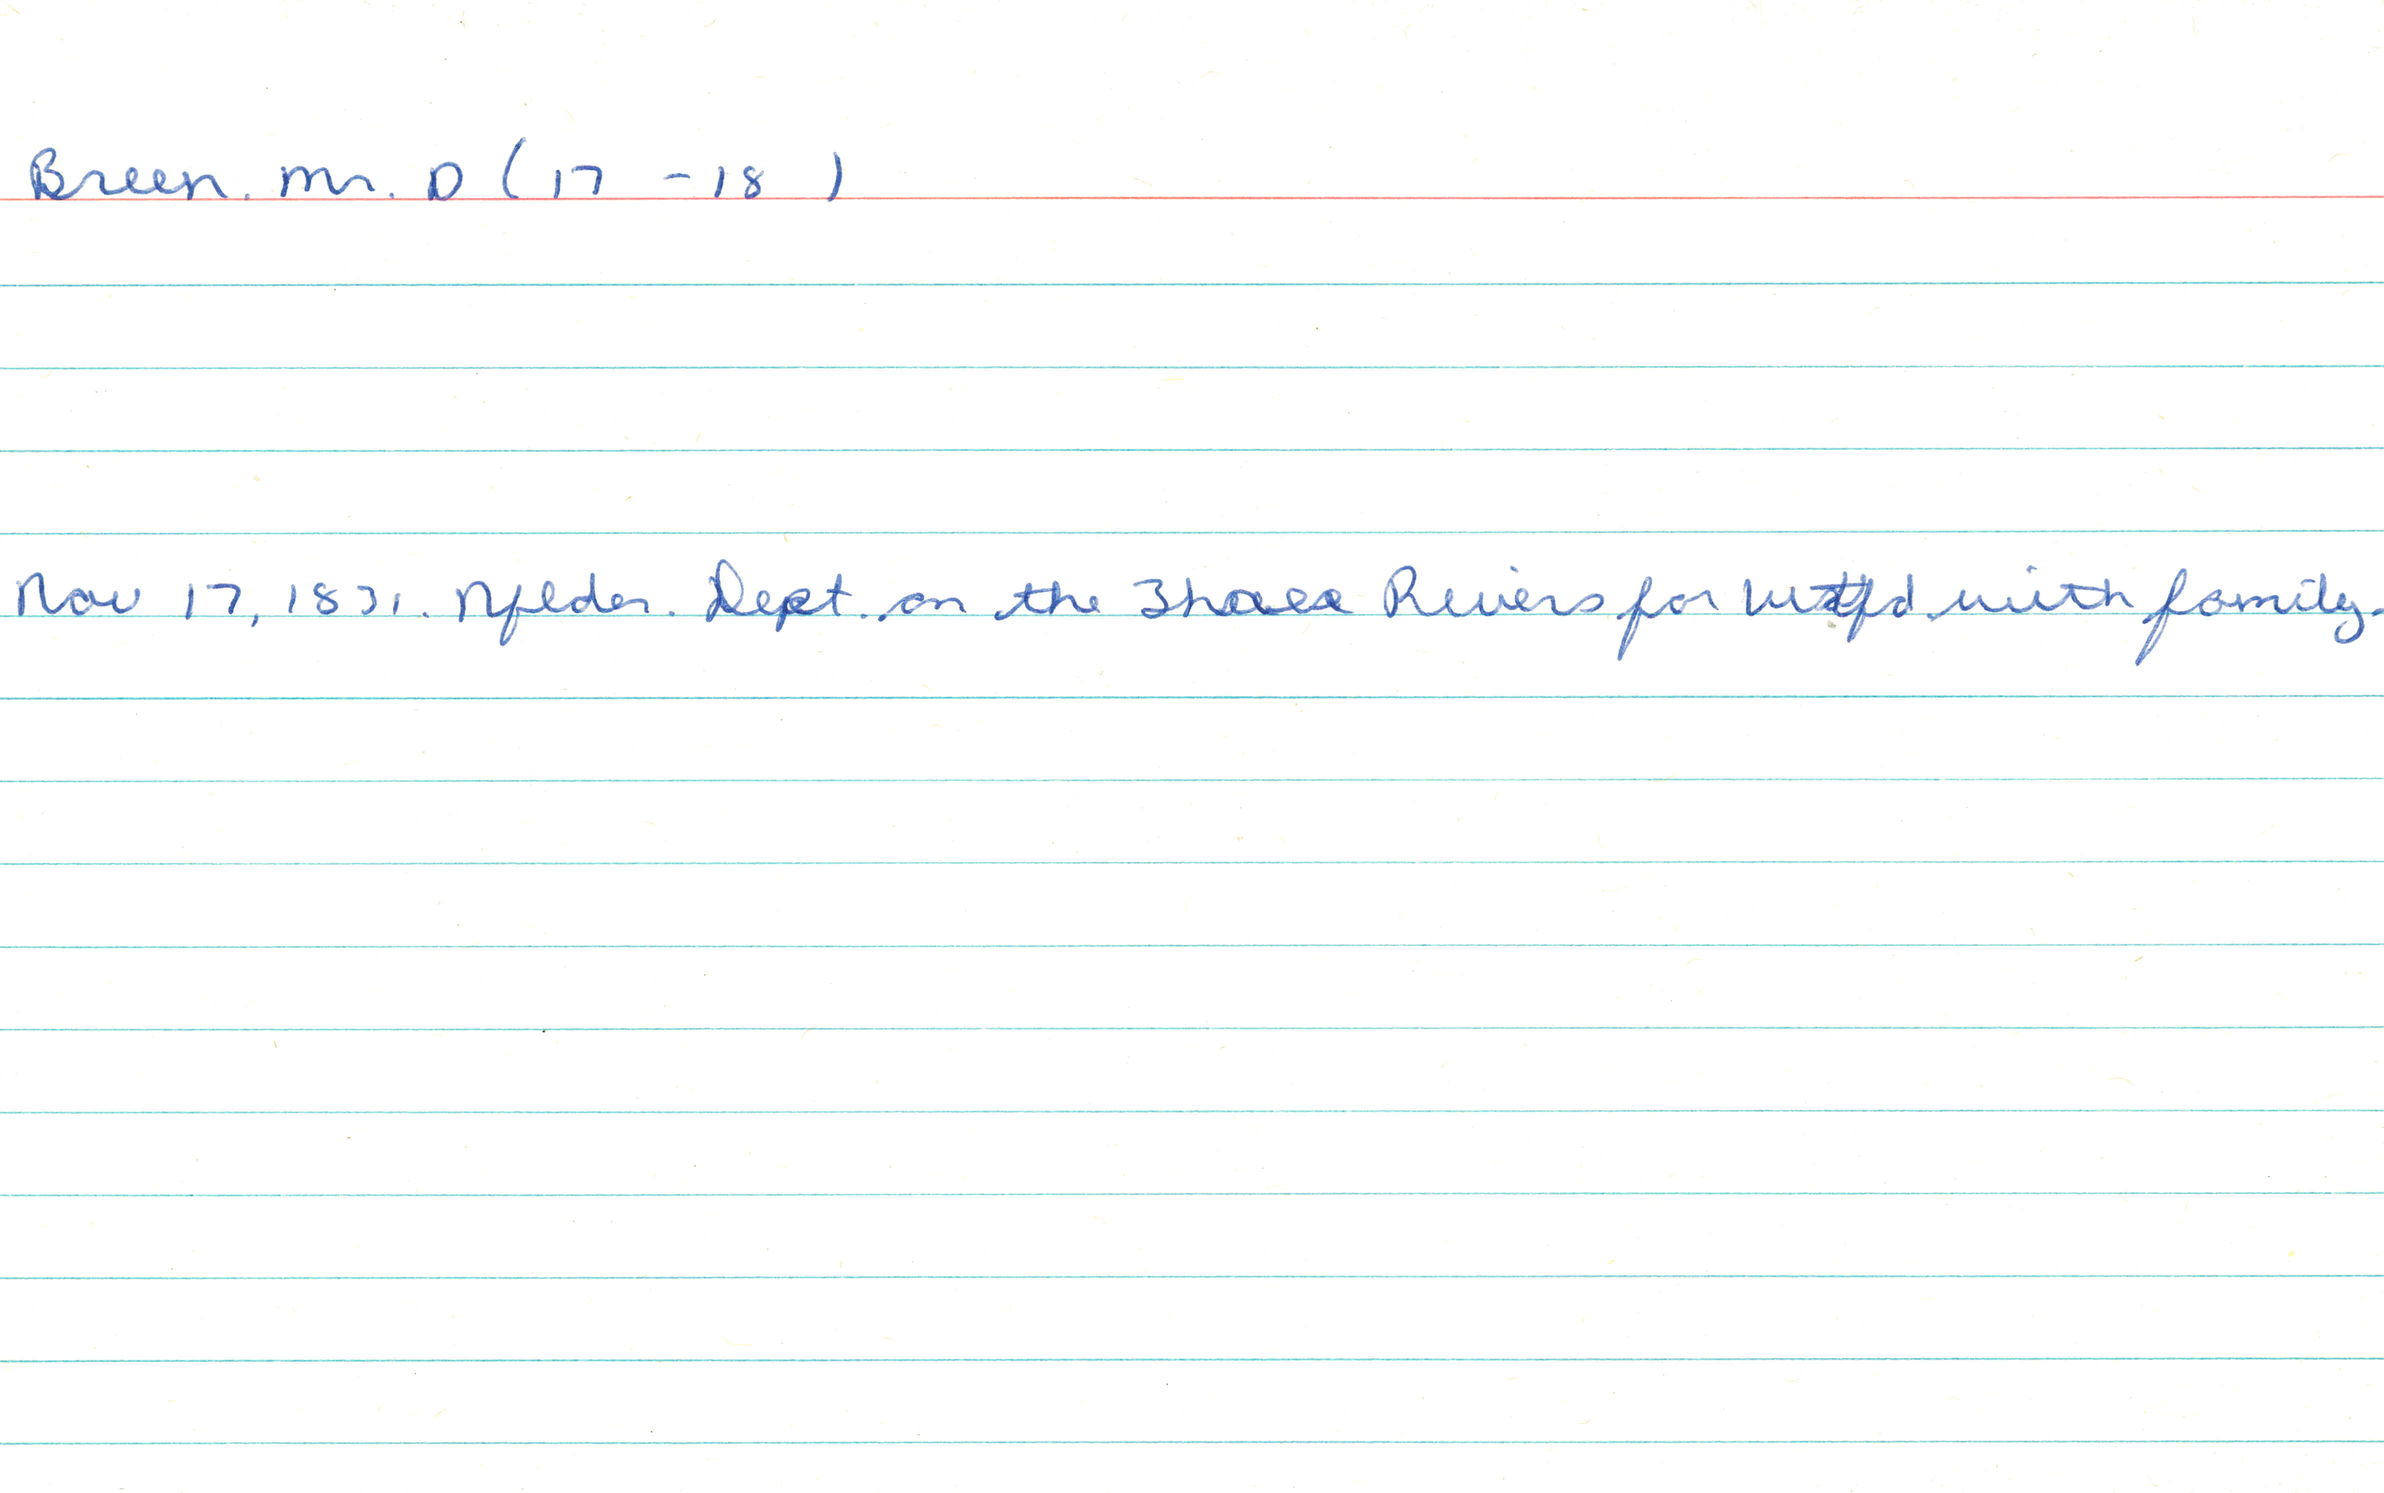 Breen. Mr. D (17 - 18 )
Nov 17, 1831. Nflder. Dept. on the Three Rivers for Watfd with family.